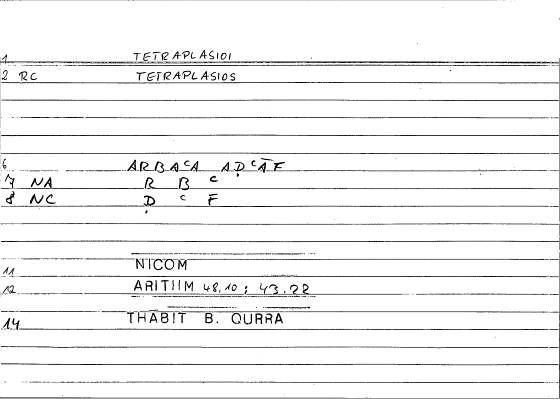 1 TETRAPLASIOI
2 RC TETRAPLASIOS
6 ARBAᶜA AḌᶜĀF
7 NA R B ᶜ
8 NC Ḍ ᶜ F
11 NICOM
12 ARITHM 48,10; 43.22
14 THĀBIT B. QURRA